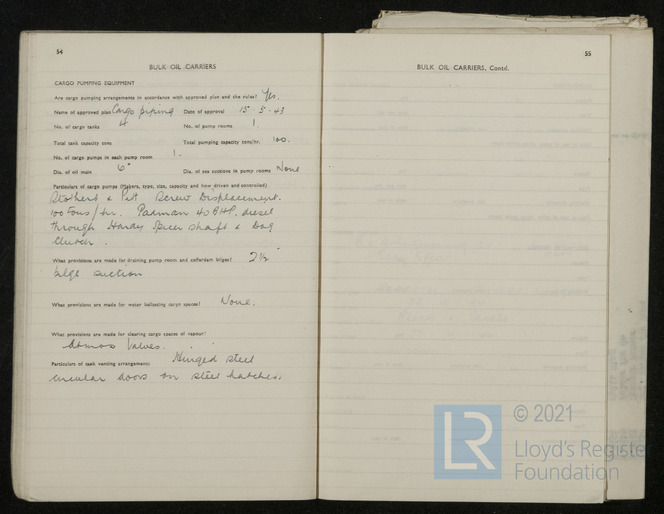 54
BULK OIL CARRIERS
CARGO PUMPING EQUIPMENT
Are cargo pumping arrangements in accordance with approved plan and the rules? Yes.
Name of approved plan Cargo piping Date of approval 15-5-43
No. of cargo tanks 4 No. of pump rooms 1.
Total tank capacity tons Total pumping capacity tons/hr. 100.
No. of cargo pumps in each pump room 1.
Dia. of oil main 6" Dia. of sea suctions in pump rooms None
Particulars of cargo pumps (Makers, type, size, capacity and how driven and controlled)
Stothert & Pitt Screw Displacement.
100 Tons/hr. 40 BHP. diesel
through Hardy Spicer shaft & Dog
Clutch.
What provisions are made for draining pump room and cofferdam bilges? 2½
bilge suction
What provisions are made for water ballasting cargo spaces? None.
What provisions are made for clearing cargo spaces of vapour?
Atmos Valves.
Particulars of tank venting arrangements Hinged steel
circular doors on steel hatches.
55
BULK OIL CARRIERS, Contd.
LR
© 2021
Lloyd's Register
Foundation